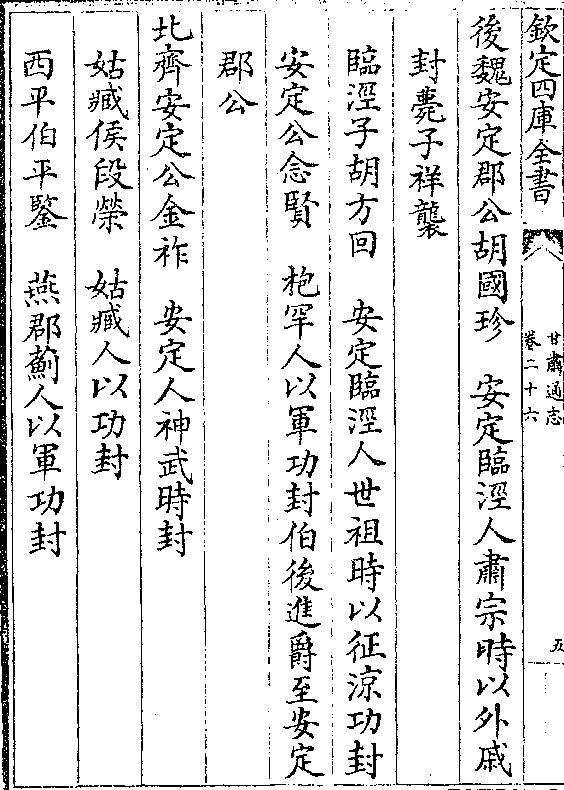 欽定四庫全書
甘肅通志
卷二十六
五
後魏安定郡公胡國珍　安定臨涇人肅宗時以外戚
封薨子祥襲
臨涇子胡方回　安定臨涇人世祖時以征涼功封
安定公念賢　枹罕人以軍功封伯後進爵至安定
郡公
北齊安定公金祚　安定人神武時封
姑臧侯段榮　姑臧人以功封
西平伯平鑒　燕郡薊人以軍功封